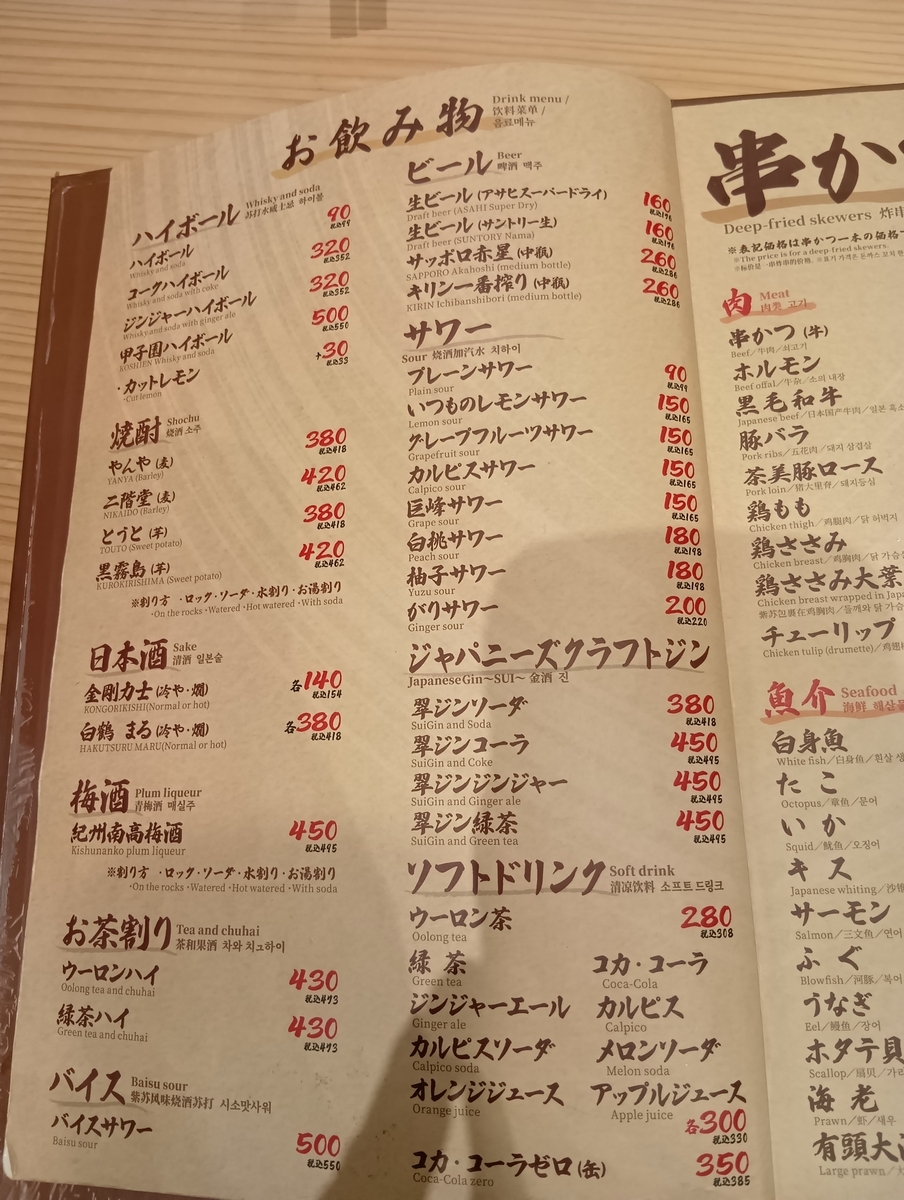 お飲み物
Drink menu /
饮料菜单 /
음료메뉴
ハイボール
Whisky and soda
苏打水威士忌 하이볼
ハイボール 90
Whisky and soda 税込99
コークハイボール 320
Whisky and soda with coke 税込352
ジンジャーハイボール 320
Whisky and soda with ginger ale 税込352
甲子園ハイボール 500
KOSHIEN Whisky and soda 税込550
・カットレモン +30
・Cut lemon 税込33
焼酎
Shochu
烧酒 소주
やんや (麦) 380
YANYA (Barley) 税込418
二階堂 (麦) 420
NIKAIDO (Barley) 税込462
とうと (芋) 380
TOUTO (Sweet potato) 税込418
黒霧島 (芋) 420
KUROKIRISHIMA (Sweet potato) 税込462
※割り方 ・ロック・ソーダ・水割り・お湯割り
・On the rocks ・Watered ・Hot watered ・With soda
日本酒
Sake
清酒 일본술
金剛力士 (冷や・燗) 各140
KONGORIKISHI(Normal or hot) 税込154
白鶴 まる (冷や・燗) 各380
HAKUTSURU MARU(Normal or hot) 税込418
梅酒
Plum liqueur
青梅酒 매실주
紀州南高梅酒 450
Kishunanko plum liqueur 税込495
※割り方 ・ロック・ソーダ・水割り・お湯割り
・On the rocks ・Watered ・Hot watered ・With soda
お茶割り
Tea and chuhai
茶和果酒 차와 치ュ하이
ウーロンハイ 430
Oolong tea and chuhai 税込473
緑茶ハイ 430
Green tea and chuhai 税込473
バイス
Baisu sour
紫苏风味烧酒苏打 시소맛사워
バイスサワー 500
Baisu sour 税込550
ビール
Beer
啤酒 맥주
生ビール (アサヒスーパードライ) 160
Draft beer (ASAHI Super Dry) 税込176
生ビール (サントリー生) 160
Draft beer (SUNTORY Nama) 税込176
サッポロ赤星 (中瓶) 260
SAPPORO Akahoshi (medium bottle) 税込286
キリン一番搾り (中瓶) 260
KIRIN Ichibanshibori (medium bottle) 税込286
サワー
Sour 烧酒加汽水 치하이
プレーンサワー 90
Plain sour 税込99
いつものレモンサワー 150
Lemon sour 税込165
グレープフルーツサワー 150
Grapefruit sour 税込165
カルピスサワー 150
Calpico sour 税込165
巨峰サワー 150
Grape sour 税込165
白桃サワー 180
Peach sour 税込198
柚子サワー 180
Yuzu sour 税込198
がりサワー 200
Ginger sour 税込220
ジャパニーズクラフトジン
JapaneseGin〜SUI〜 金酒 진
翠ジンソーダ 380
SuiGin and Soda 税込418
翠ジンコーラ 450
SuiGin and Coke 税込495
翠ジンジンジャー 450
SuiGin and Ginger ale 税込495
翠ジン緑茶 450
SuiGin and Green tea 税込495
ソフトドリンク
Soft drink
清凉饮料 소프트 드링크
ウーロン茶 280
Oolong tea 税込308
緑茶 コカ・コーラ
Green tea Coca-Cola
ジンジャーエール カルピス
Ginger ale Calpico
カルピスソーダ メロンソーダ
Calpico soda Melon soda
オレンジジュース アップルジュース
Orange juice Apple juice
各300
税込330
コカ・コーラゼロ (缶) 350
Coca-Cola zero 税込385
串か
Deep-fried skewers 炸串
※表記価格は串かつ一本の価格で
※The price is for a deep fried skewers.
肉
Meat
肉类 고기
串かつ (牛)
Beef/牛肉/쇠고기
ホルモン
Beef offal/牛杂/소의 내장
黒毛和牛
Japanese beef/日本国产牛肉/일본 흑소
豚バラ
Pork ribs/五花肉/돼지 삼겹살
茶美豚ロース
Pork loin/猪大里脊/돼지등심
鶏もも
Chicken thigh/鸡腿肉/닭 허벅지
鶏ささみ
Chicken breast/鸡胸肉/닭 가슴
鶏ささみ大葉
Chicken breast wrapped in Japa
紫苏包裹在鸡胸肉/들깨와 닭 가슴
チューリップ
Chicken tulip (drumette)/鸡翅
魚介
Seafood
海鲜 해산물
白身魚
White fish/白身魚/흰살 생
たこ
Octopus/章鱼/문어
いか
Squid/鱿鱼/오징어
キス
Japanese whiting/沙
サーモン
Salmon/三文鱼/연어
ふぐ
Blowfish/河豚/복어
うなぎ
Eel/鳗鱼/장어
ホタテ貝
Scallop/扇贝/가리
海老
Prawn/虾/새우
有頭大
Large prawn/大